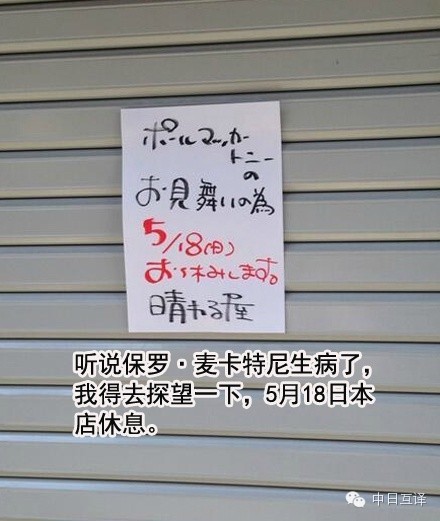 ポールマッカー
トニー
の
お見舞いの為
5/18(日)
お休みします。
晴れる屋
听说保罗·麦卡特尼生病了，
我得去探望一下，5月18日本
店休息。
中日互译